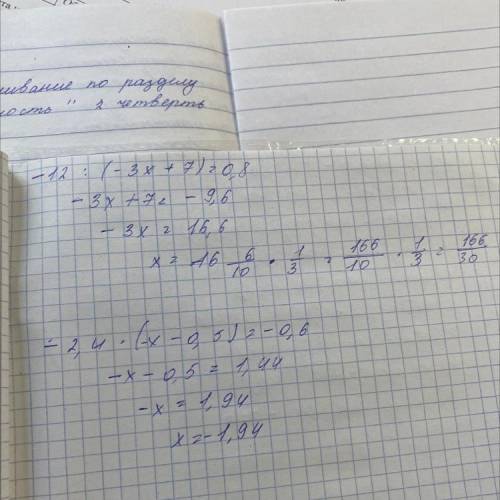 ивание по разделу
ность" 2 четверть
-12 : (-3x + 7) = 0,8
-3x + 7 = -9,6
-3x = 16,6
x = -16 6/10 · 1/3 = 166/10 · 1/3 = 166/30
-2,4 · (-x - 0,5) = -0,6
-x - 0,5 = 1,44
-x = 1,94
x = -1,94